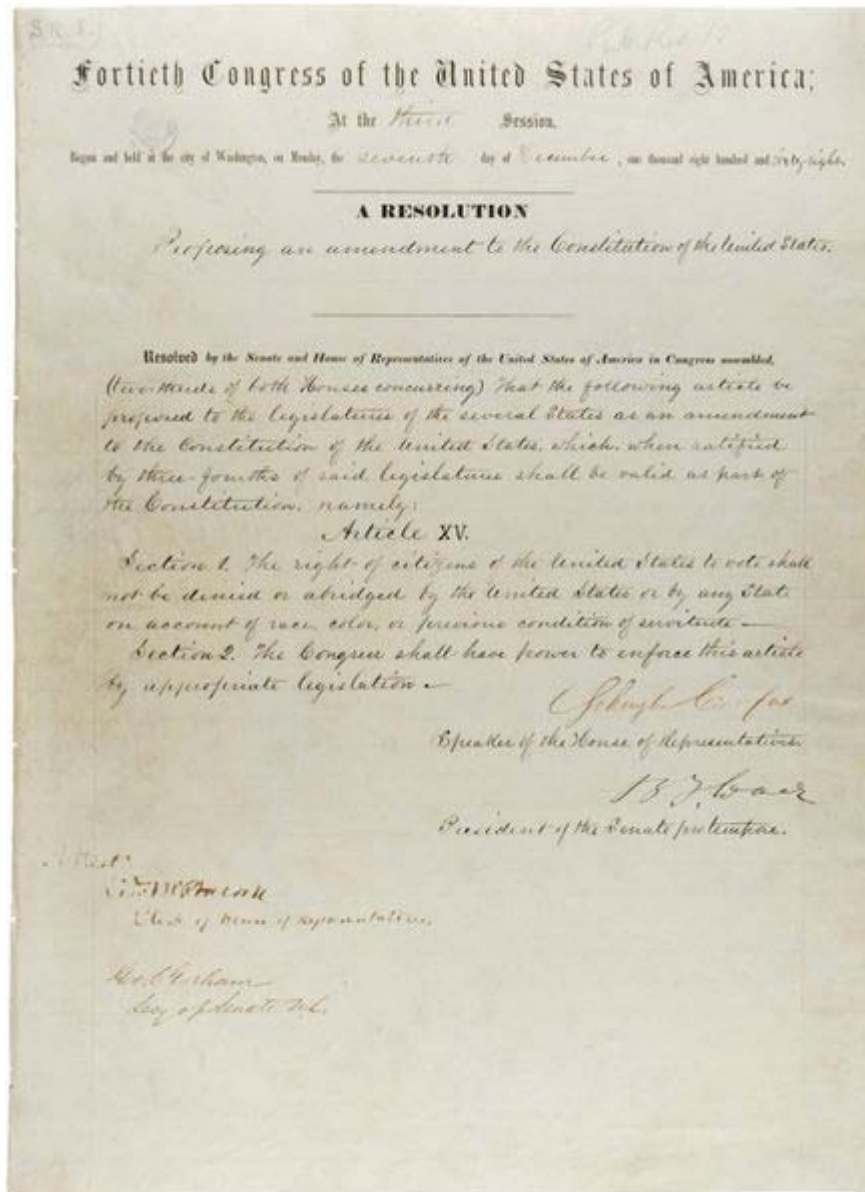 S.R. 8.
Fortieth Congress of the United States of America;
At the third Session,
Begun and held at the city of Washington, on Monday, the seventh day of December, one thousand eight hundred and sixty-eight.
A RESOLUTION
Proposing an amendment to the Constitution of the United States.
Resolved by the Senate and House of Representatives of the United States of America in Congress assembled,
(two-thirds of both Houses concurring) That the following article be
proposed to the legislatures of the several States as an amendment
to the Constitution of the United States, which, when ratified
by three-fourths of said legislatures shall be valid as part of
the Constitution, namely:
Article XV.
Section 1. The right of citizens of the United States to vote shall
not be denied or abridged by the United States or by any State
on account of race, color, or previous condition of servitude —
Section 2. The Congress shall have power to enforce this article
by appropriate legislation —
Schuyler Colfax
Speaker of the House of Representatives.
B F Wade
President of the Senate pro tempore.
Attest:
Edw McPherson
Clerk of House of Representatives.
Geo. C. Gorham
Secy of Senate U.S.